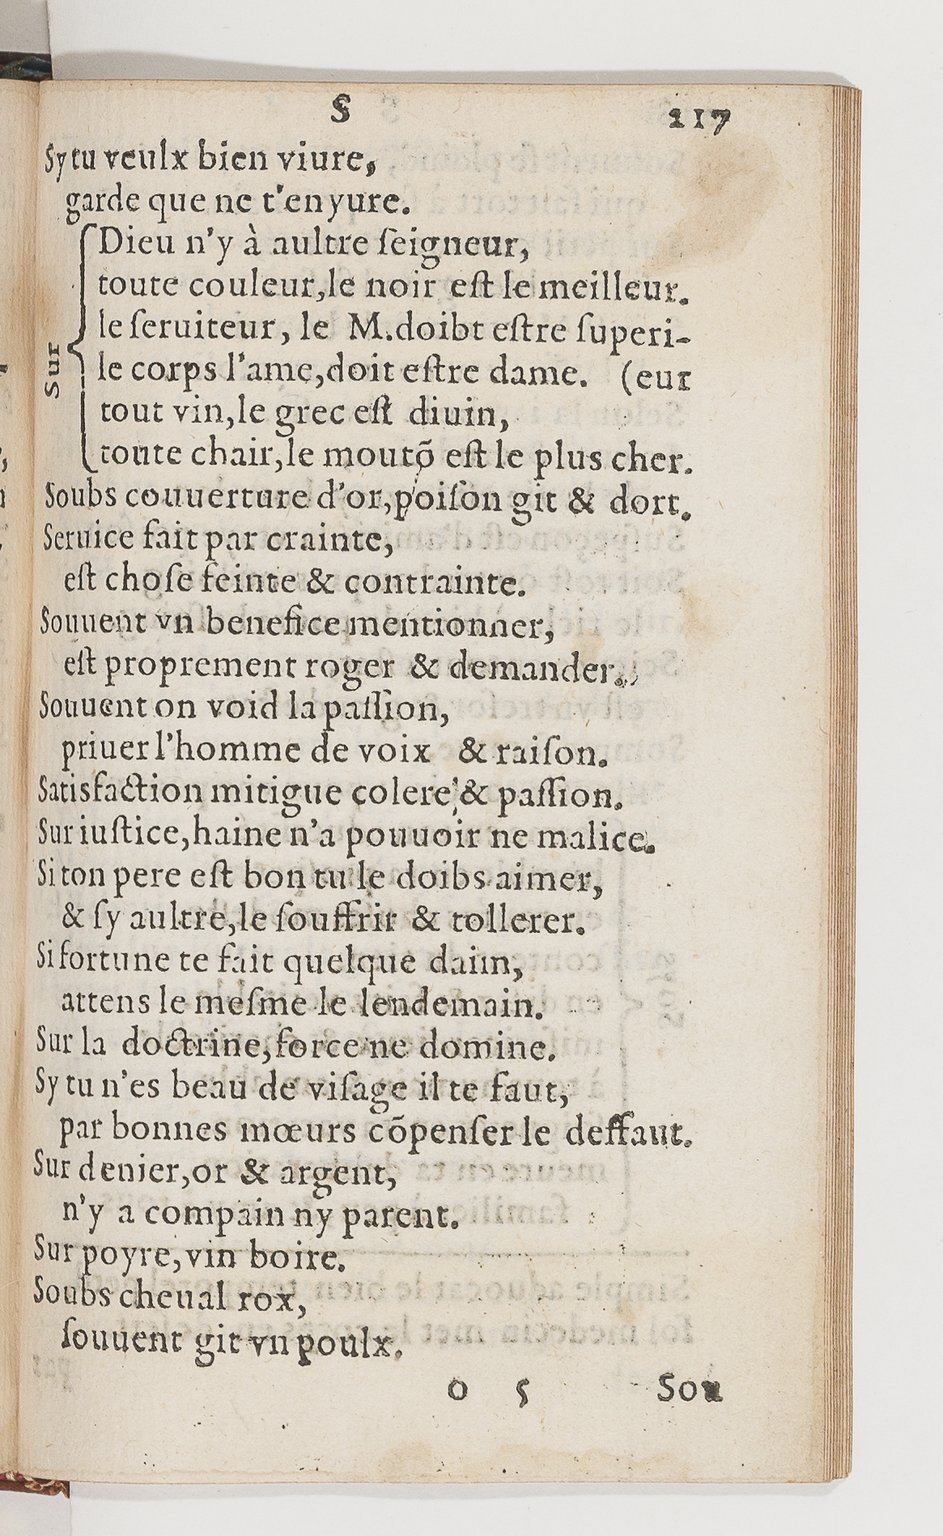 S 217
Sy tu veulx bien viure,
garde que ne t'enyure.
Dieu n'y à aultre ſeigneur,
toute couleur,le noir eſt le meilleur.
le ſeruiteur, le M.doibt eſtre ſuperi-
Sur
le corps l'ame,doit eſtre dame. (eur
tout vin,le grec eſt diuin,
toute chair,le moutõ eſt le plus cher.
Soubs couuerture d'or,poiſon git & dort.
Seruice fait par crainte,
eſt choſe feinte & contrainte.
Souuent vn benefice mentionner,
eſt proprement roger & demander.
Souuent on void la paſſion,
priuer l'homme de voix & raiſon.
Satisfaction mitigue colere & paſſion.
Sur iuſtice,haine n'a pouuoir ne malice.
Si ton pere eſt bon tu le doibs aimer,
& ſy aultre,le ſouffrir & tollerer.
Si fortune te fait quelque daim,
attens le meſme le lendemain.
Sur la doctrine,force ne domine.
Sy tu n'es beau de viſage il te faut,
par bonnes mœurs cõpenſer le deffaut.
Sur denier,or & argent,
n'y a compain ny parent.
Sur poyre,vin boire.
Soubs cheual rox,
ſouuent git vn poulx.
o 5 Sou